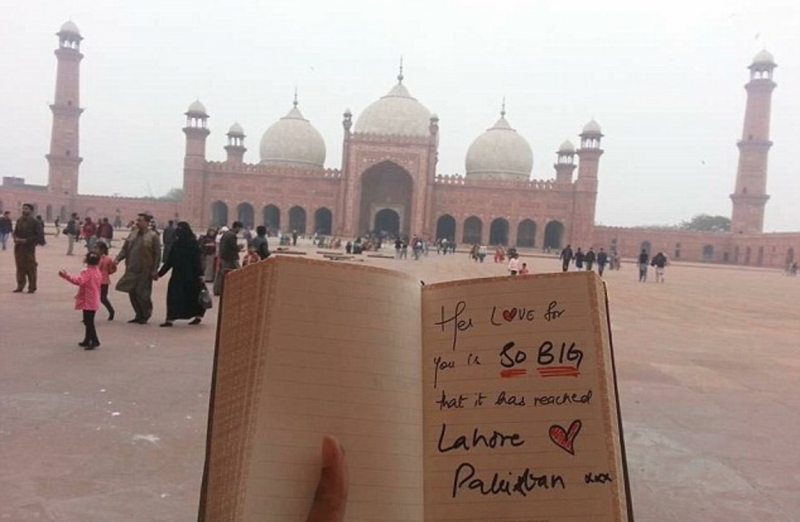 Her LOVE for
you is SO BIG
that it has reached
Lahore
Pakistan xxx